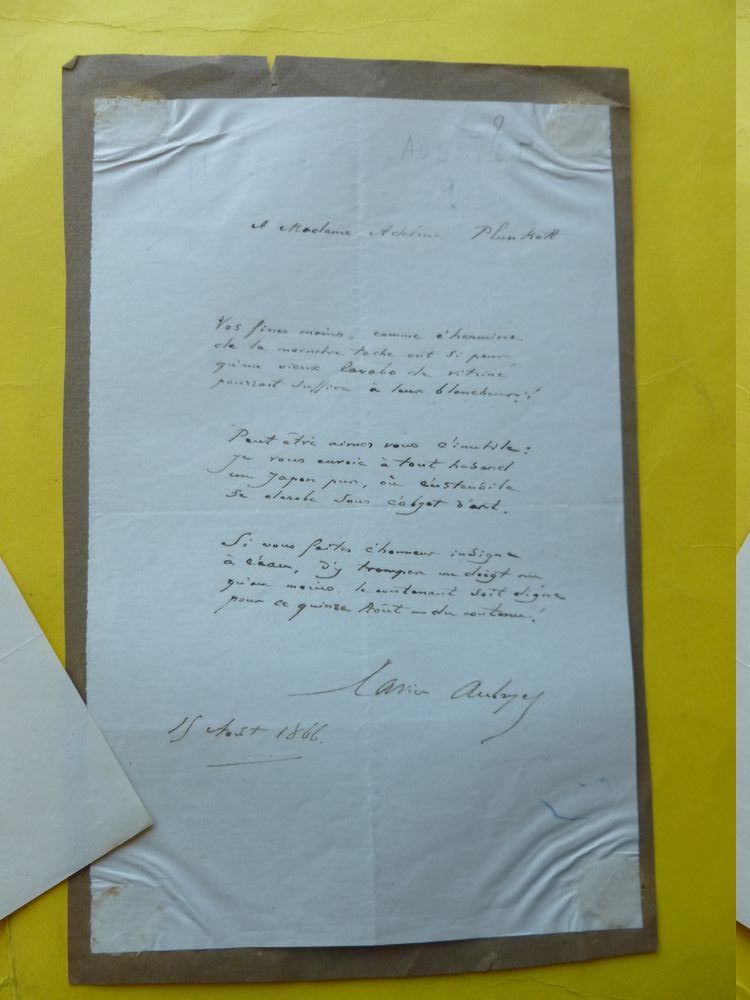 A Madame Adeline Plunkett
Vos fines mains, comme l'hermine
de la moindre tache ont si peur
qu'un vieux lavabo de vitrine
pourrait suffire à leur blancheur!
Peut être aimez vous l'inutile:
je vous envoie à tout hasard
un Japon pur, où l'ustensile
se dérobe sous l'objet d'art.
Si vous faites l'honneur insigne
à l'eau, d'y tremper un doigt nu
qu'au moins le contenant soit digne
pour ce quinze Août — du contenu!
Xavier Aubryet
15 Août 1866.